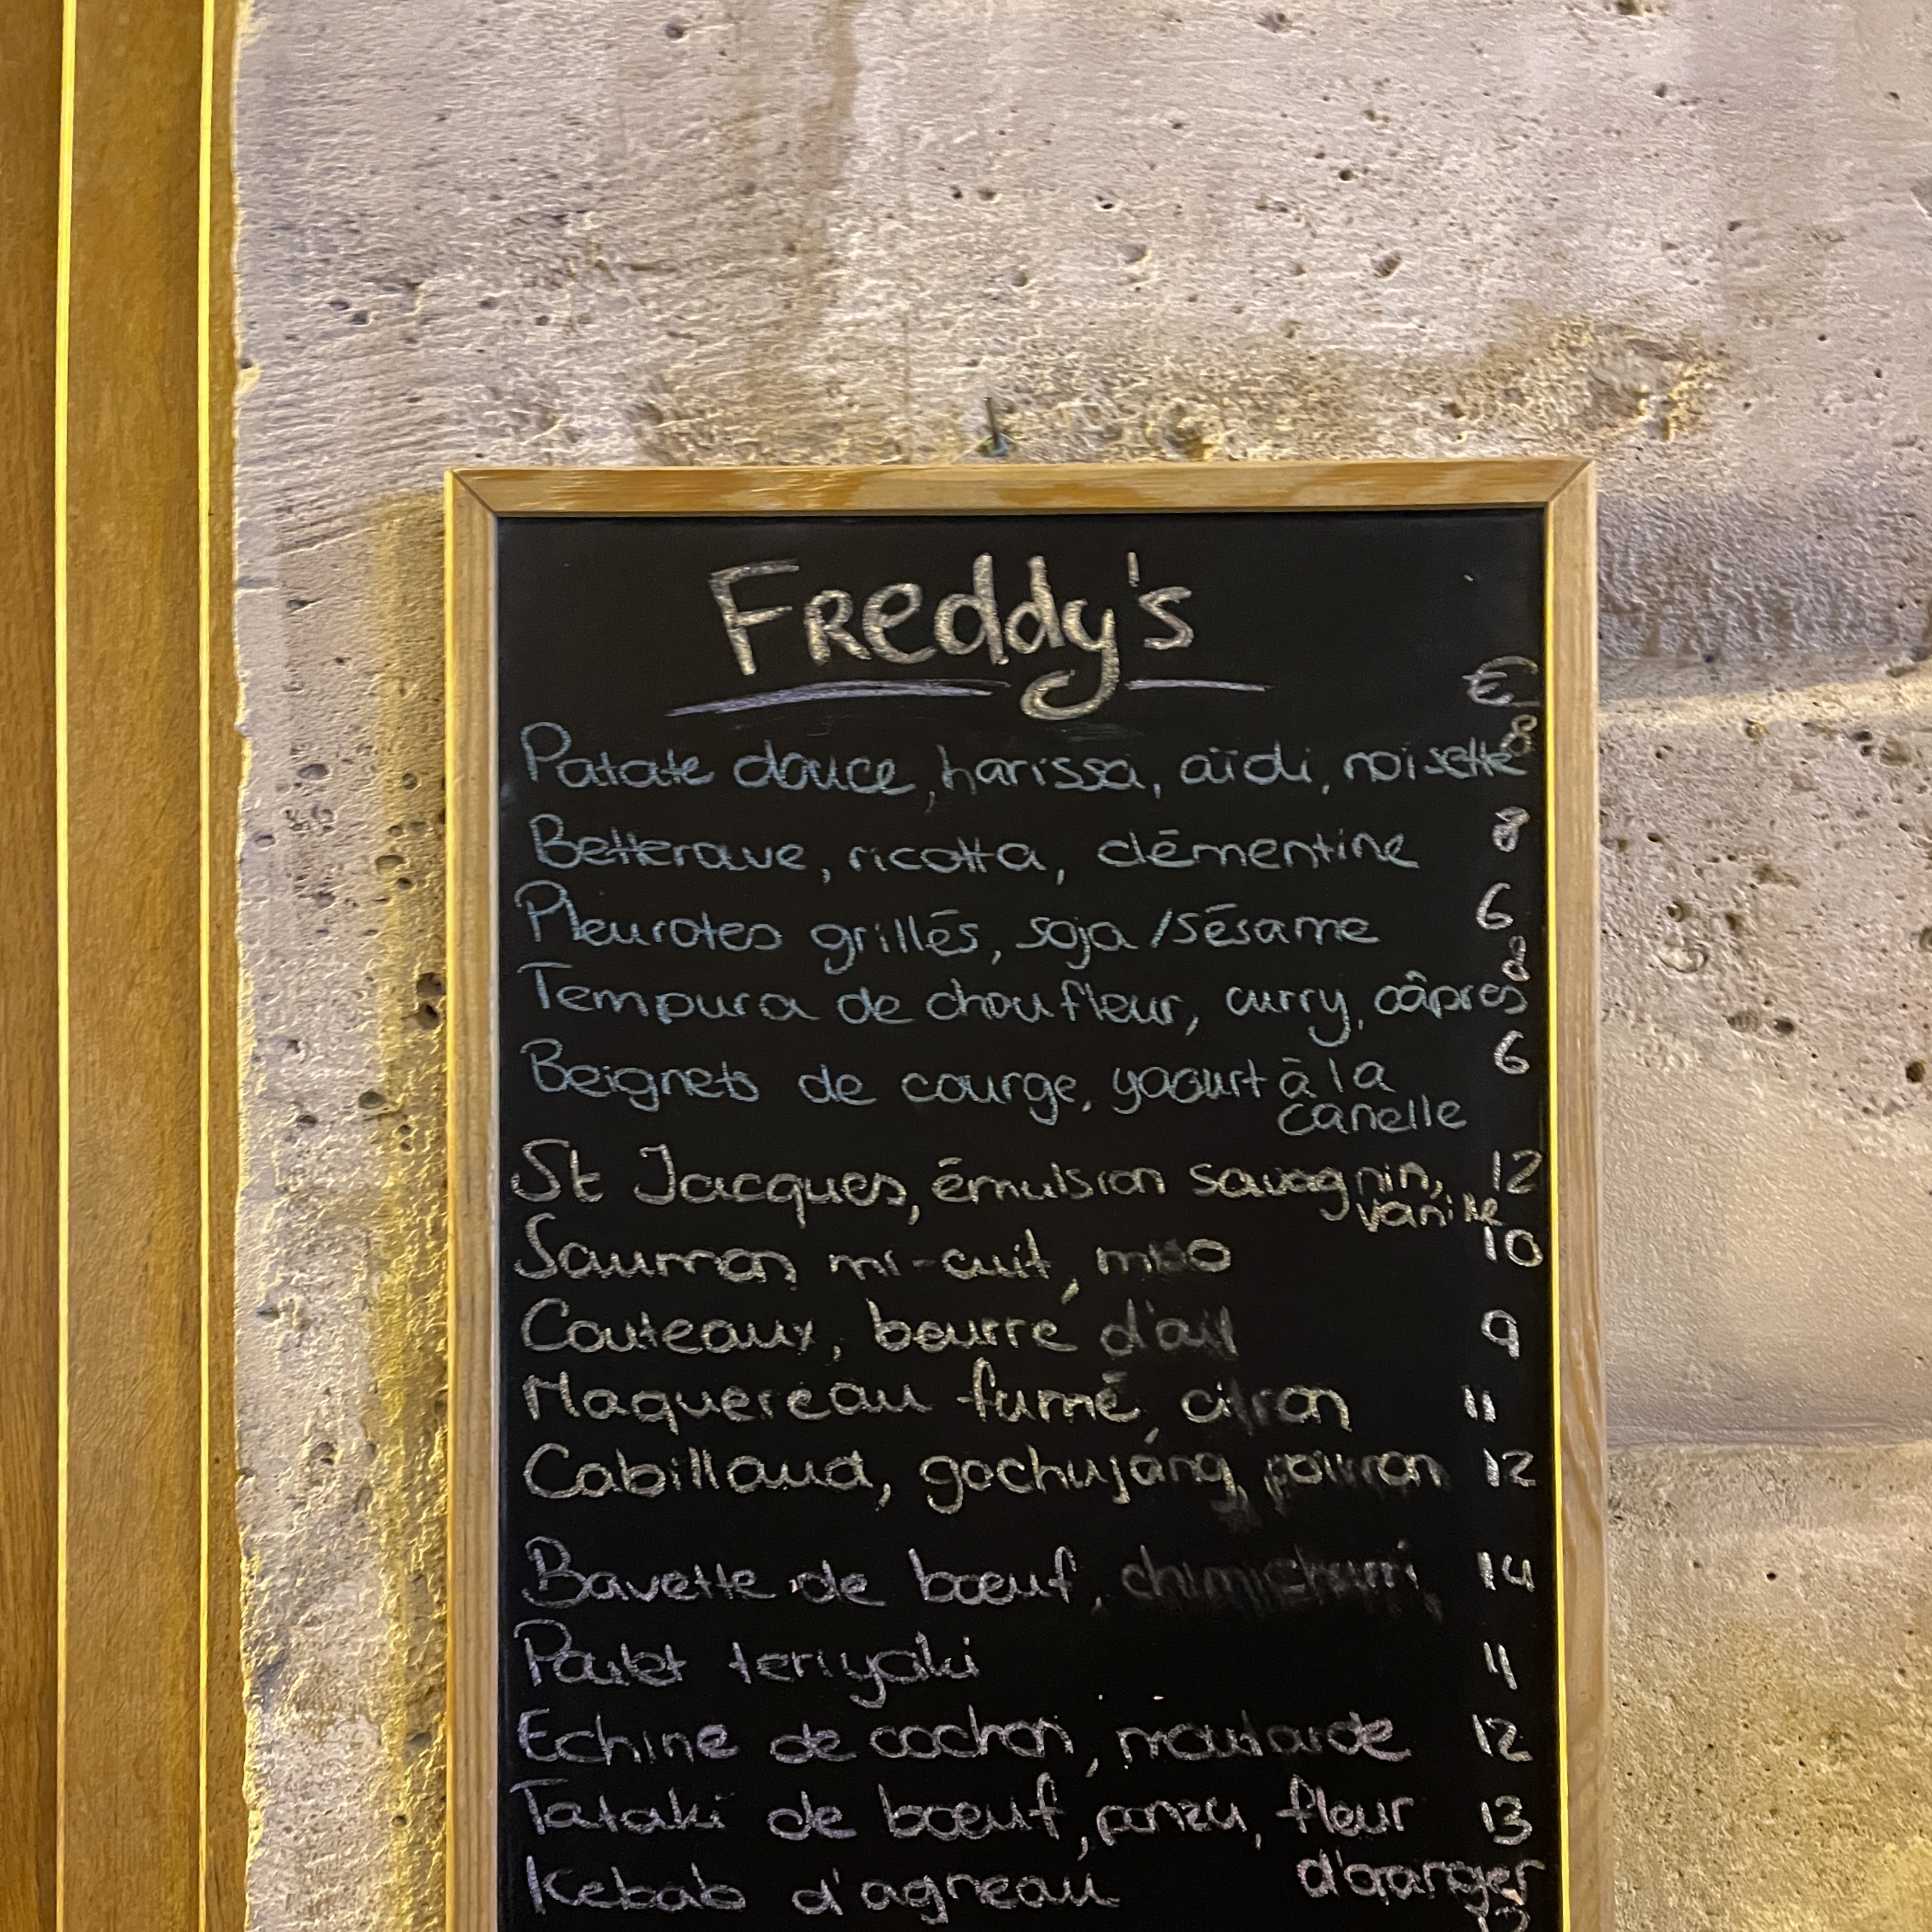 FReddy's
€
Patate douce, harissa, aïoli, noisette 8
Betterave, ricotta, clémentine 8
Pleurotes grillés, soja/sésame 6
Tempura de chou fleur, curry, câpres 8
Beignets de courge, yaourt à la 6
canelle
St Jacques, émulsion savagnin, 12
vanille
Saumon mi-cuit, miso 10
Couteaux, beurre d'ail 9
Maquereau fumé, citron 11
Cabillaud, gochujang, poivron 12
Bavette de boeuf, chimichurri 14
Poulet teriyaki 11
Echine de cochon, moutarde 12
Tataki de boeuf, ponzu, fleur 13
d'oranger
Kebab d'agneau